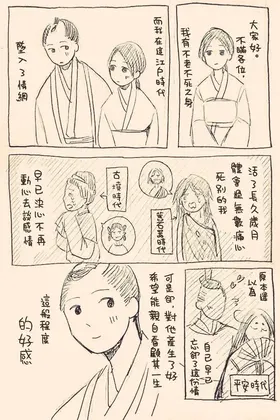 大家好。
不瞞各位，
我有不老不死之身
而我在這江戶時代
墜入了情網
活了長久歲月
體會過無數痛心
死別的我
時代
古墳時代
早已決心不再
動心去談感情
原本還
以為
自己早已
忘卻了這份情
平安時代
可是卻對他產生了好
希望能親自看顧其一生
這般程度
的好感